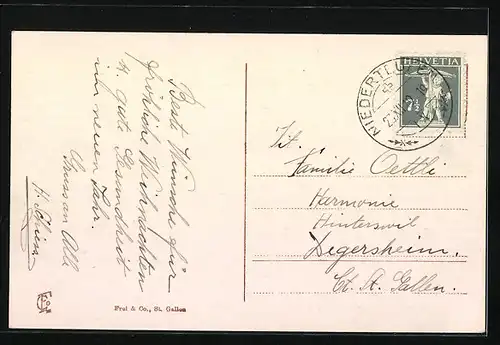 Beste Wünsche für
fröhliche Weihnachten
u. gute Gesundheit
im neuen Jahr.
Gruss an Alle
HELVETIA
7½
NIEDERTEUFEN
Tit.
Familie Oettli
Harmonie
Hinterwil
Degersheim.
Ct. St. Gallen.
Frei & Co., St. Gallen